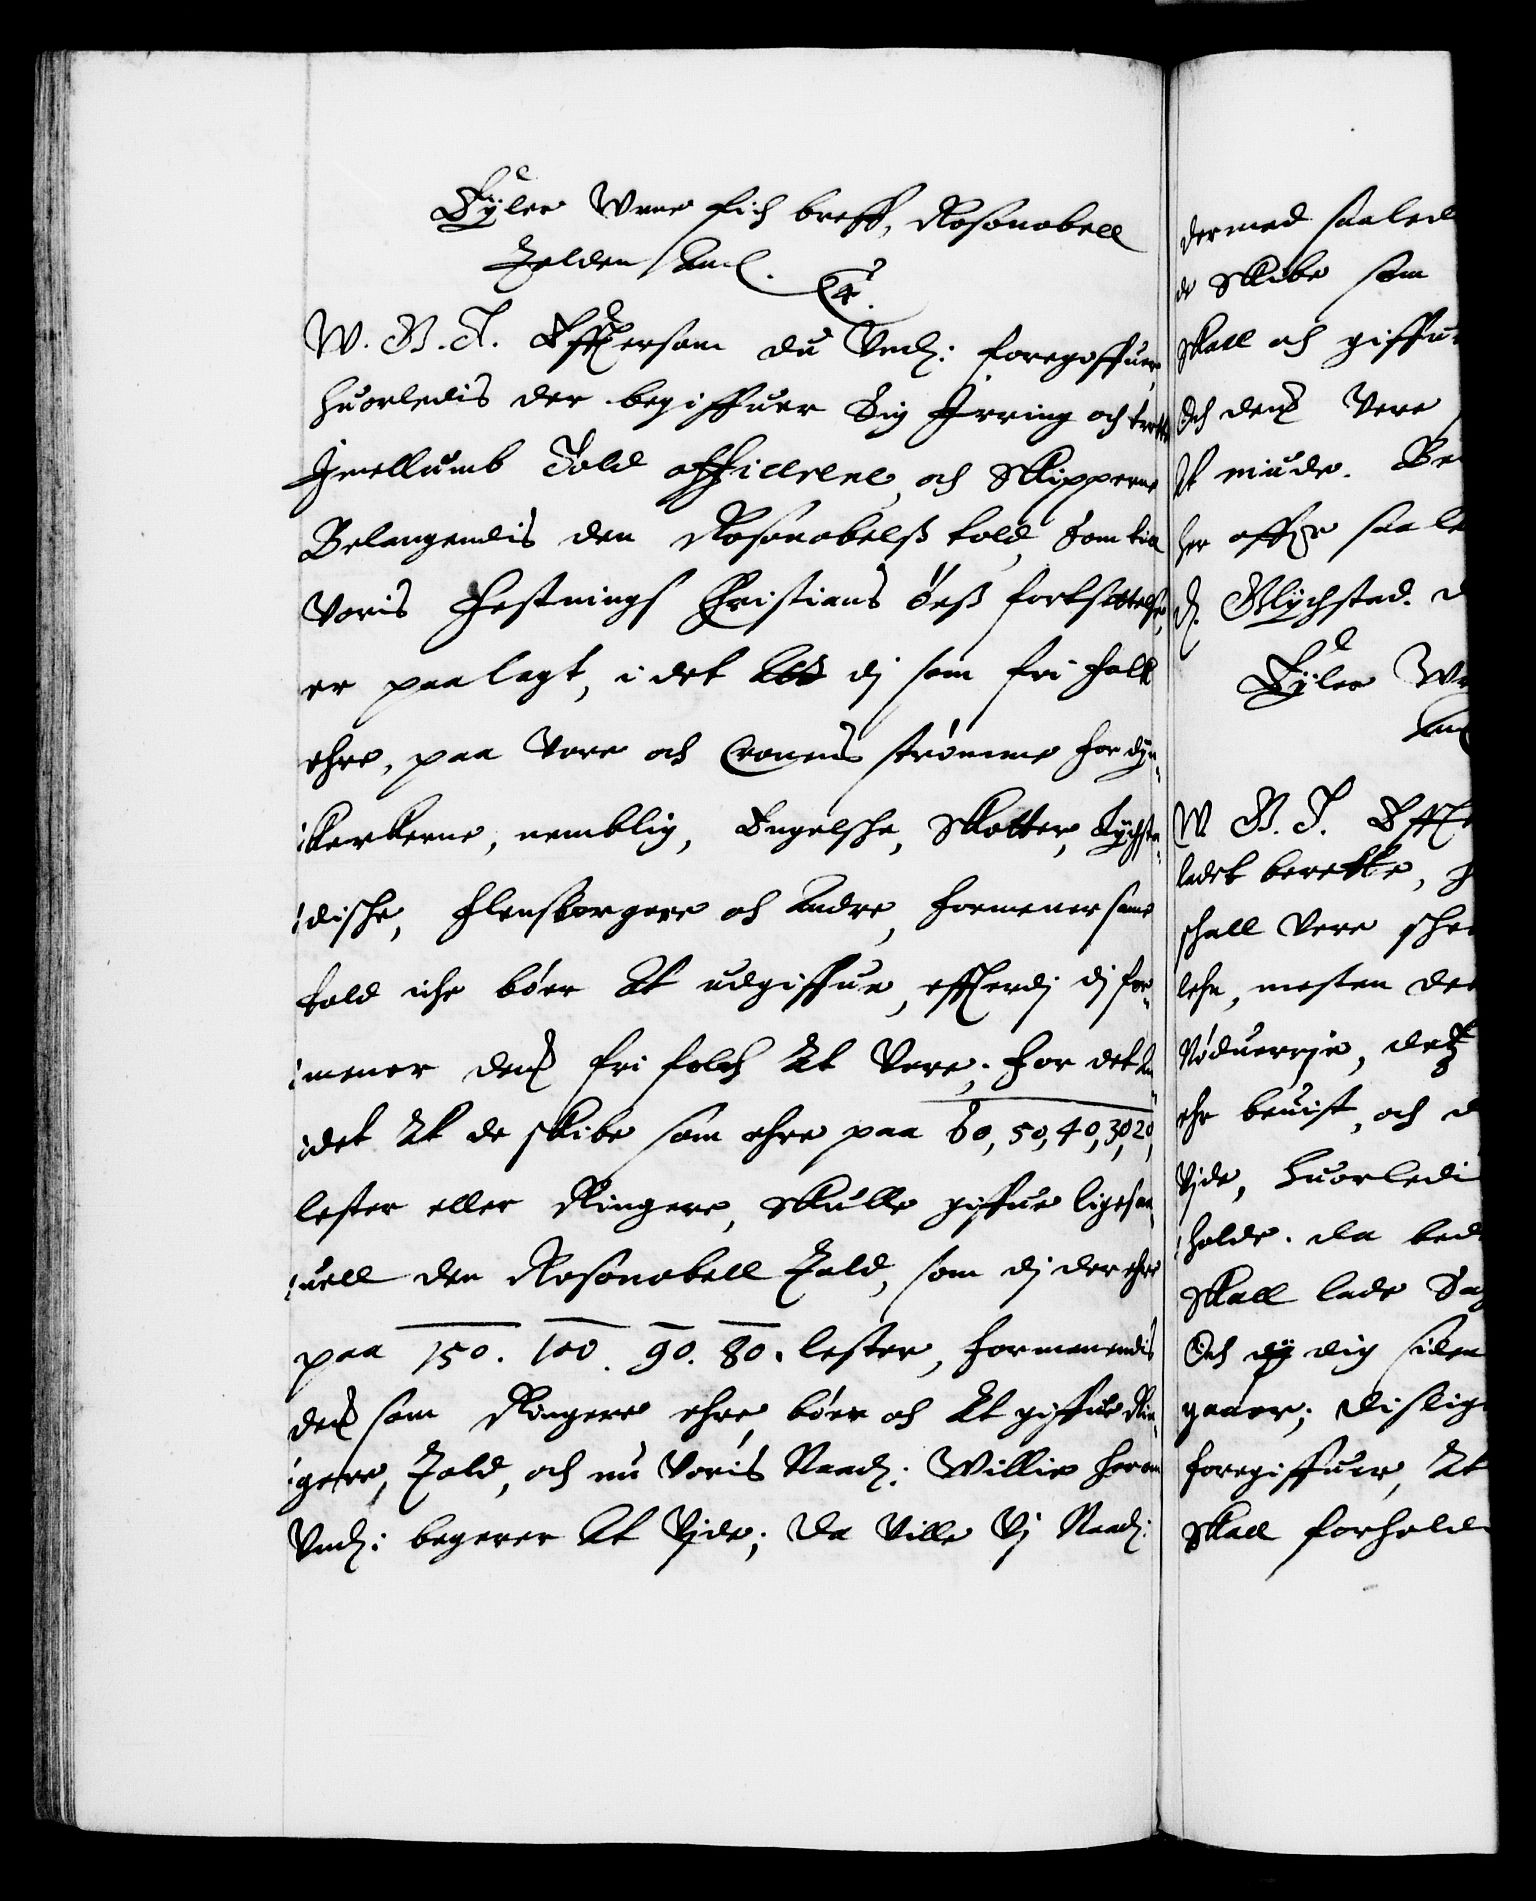 Eyler Vrne fich breff, Rosenobell
Tolden Anl.
W. G. T. Efftersom du Vnd: foregiffuer,
huorledis der begiffuer Sig Jrring och trette
Jmellumb Told officerene, och Skipperne
Belangendis den Rosenobelß told, som till
Voris Festnings Christians Öeß fortsettelse,
er paalagt, i det dj som fri folk
ehre, paa Vore och Cronens strømme for dyn¬
kerkerne, nemblig, Engelske, Skotter, Lychsta¬
dische, Flensborgere och Andre, formener samme
told iche bøer At udgiffue, effterdj dj for¬
mener dem fri folch At Vere; For det An¬
det At de skibe som ehre paa 60, 50, 40, 30, 20,
lester eller Ringere, skulle giffue ligesaa
uell den Rosenobell Told, som dj der ehre
paa 150. 100. 90. 80. lester, formenendis
dem som Ringere ehre, bøer och At giffue Rin¬
gere, Told, och nu Voris Naad: Willie herom
Vnd: begerer At Vide; Da Ville Vj Naad:
dermed saaled
de Skibe som
skall och giffue
Och dem Vere
At miude. Be
her effter saa le
d. Glychstad. d
Eyler Vr
Anl
W. G. T. Effte
ladet berette,
schall Vere
lehn, mesten de
Nøduerrie,
ehr beuist, och d
Vide, Huorledi
holde. da bed
skall lade Sag
Och dig siden
gaaer; disligе
foregiffuer, At
skall forhold